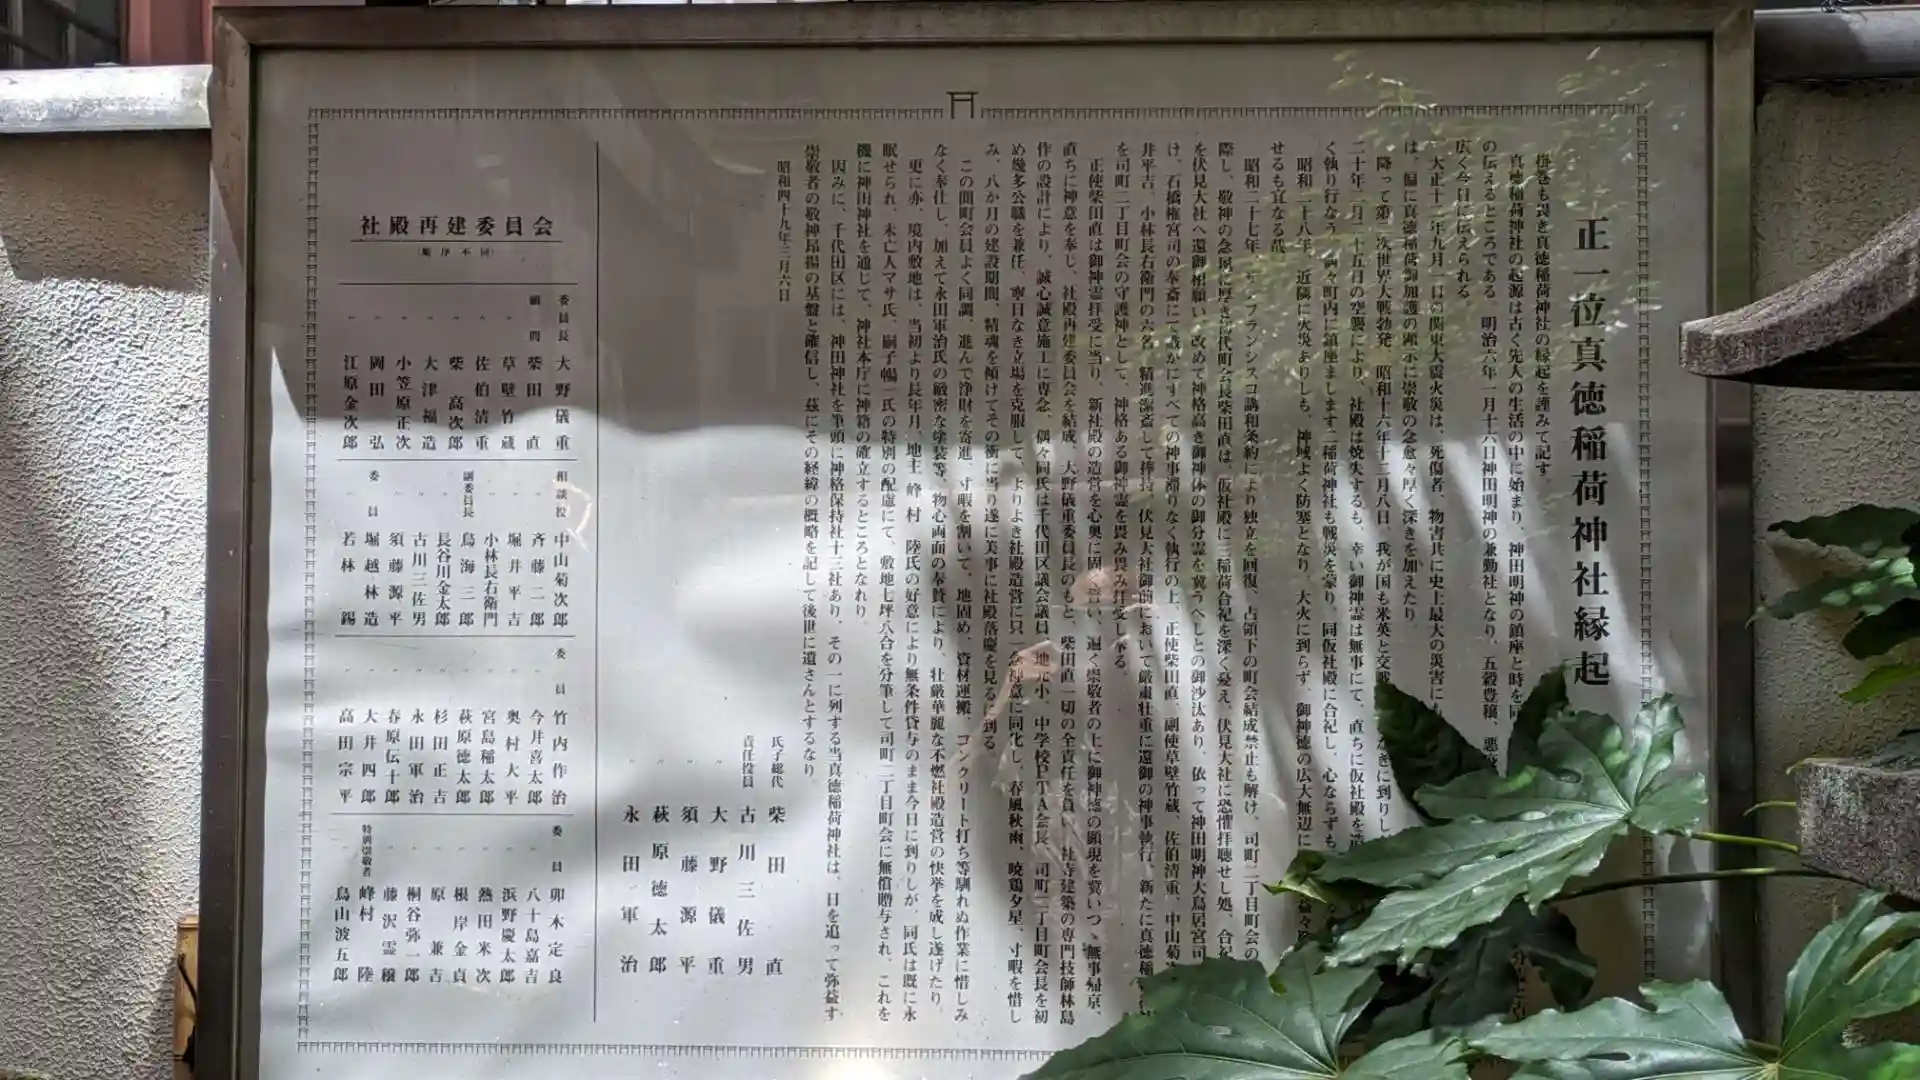 正一位真徳稲荷神社縁起
掛巻も畏き真徳稲荷神社の縁起を謹みて記す
真徳稲荷神社の起源は古く先人の生活の中に始まり、神田明神の鎮座と時を同
の伝えるところである 明治六年一月十六日神田明神の兼勤社となり、五穀豊穣、悪疫
広く今日に伝えられる
大正十二年九月一日の関東大震火災は、死傷者、物害共に史上最大の災害にも
は、偏に真徳稲荷御加護の顕示に崇敬の念愈々厚く深きを加えたり
降って第二次世界大戦勃発 昭和十六年十二月八日、我が国も米英と交戦
なきに到りし
二十年二月二十五日の空襲により、社殿は焼失するも、幸い御神霊は無事にて、直ちに仮社殿を
く執り行なう 偶々町内に鎮座まします二稲荷神社も戦災を蒙り、同仮社殿に合祀し、心ならずも
昭和二十八年、近隣に火災ありしも、神域よく防塞となり、大火に到らず、御神徳の広大無辺に
せるも宜なる哉
昭和二十七年、サンフランシスコ講和条約により独立を回復、占領下の町会結成禁止も解け、司町二丁目町会の
際し、敬神の念夙に厚き初代町会長柴田直は、仮社殿に三稲荷合祀を深く憂え、伏見大社に恐懼拝聴せし処、合祀
を伏見大社へ還御相願い、改めて神格高き御神体の御分霊を冀うべしとの御沙汰あり、依って神田明神大鳥居宮司
け、石橋権宮司の奉斎にて厳かにすべての神事滞りなく執行の上、正使柴田直、副使草壁竹蔵、佐伯清重、中山菊次
井平吉、小林長右衛門の六名、精進潔斎して捧持、伏見大社御前において厳粛壮重に還御の神事執行、新たに真徳稲
を司町二丁目町会の守護神として、神格ある御神霊を畏み畏み拝受し奉る
正使柴田直は御神霊拝受に当り、新社殿の造営を心奥に固く誓い、遍く崇敬者の上に御神徳の顕現を冀いつゝ無事帰京、
直ちに神意を奉じ、社殿再建委員会を結成、大野儀重委員長のもと、柴田直一切の全責任を負い、社寺建築の専門技師林島
作の設計により、誠心誠意施工に専念、偶々同氏は千代田区議会議員、地元小、中学校PTA会長、司町二丁目町会長を初
め幾多公職を兼任、寧日なき立場を克服して、よりよき社殿造営に只一念神意に同化し、春風秋雨、暁鶏夕星、寸暇を惜し
み、八か月の建設期間、精魂を傾けてその衝に当り遂に美事に社殿落慶を見るに到る
この間町会員よく同調、進んで浄財を寄進、寸暇を割いて、地固め、資材運搬、コンクリート打ち等馴れぬ作業に惜しみ
なく奉仕し、加えて永田軍治氏の厳密な塗装等、物心両面の奉賛により、壮厳華麗な不燃社殿造営の快挙を成し遂げたり
更に亦、境内敷地は、当初より長年月、地主 峰村 陸氏の好意により無条件貸与のまま今日に到りしが、同氏は既に永
眠せられ、未亡人マサ氏、嗣子暢一氏の特別の配慮にて、敷地七坪八合を分筆して司町二丁目町会に無償贈与され、これを
機に神田神社を通じて、神社本庁に神籍の確立するところとなれり
因みに、千代田区には、神田神社を筆頭に神格保持社十三社あり、その一に列する当真徳稲荷神社は、日を追って弥益す
崇敬者の敬神昂揚の基盤と確信し、茲にその経緯の概略を記して後世に遺さんとするなり
昭和四十九年三月六日
氏子総代 柴田 直
責任役員 古川三佐男
〃 大野儀重
〃 須藤源平
〃 萩原徳太郎
〃 永田軍治
社殿再建委員会
(順序不同)
委員長 大野儀重
顧問 柴田 直
〃 草壁竹蔵
〃 佐伯清重
〃 柴 高次郎
〃 大津福造
〃 小笠原正次
〃 岡田 弘
〃 江原金次郎
相談役 中山菊次郎
〃 斉藤二郎
〃 堀井平吉
〃 小林長右衛門
副委員長 鳥海三郎
〃 長谷川金太郎
〃 古川三佐男
〃 須藤源平
委員 堀越林造
〃 若林 錫
委員 竹内作治
〃 今井喜太郎
〃 奥村大平
〃 宮島稲太郎
〃 萩原徳太郎
〃 杉田正吉
〃 永田軍治
〃 春原伝十郎
〃 大井四郎
〃 高田宗平
委員 卯木定良
〃 八十島嘉吉
〃 浜野慶太郎
〃 熱田米次
〃 根岸金貞
〃 原 兼吉
〃 桐谷弥一郎
〃 藤沢霊穣
特別崇敬者 峰村 陸
〃 鳥山波五郎